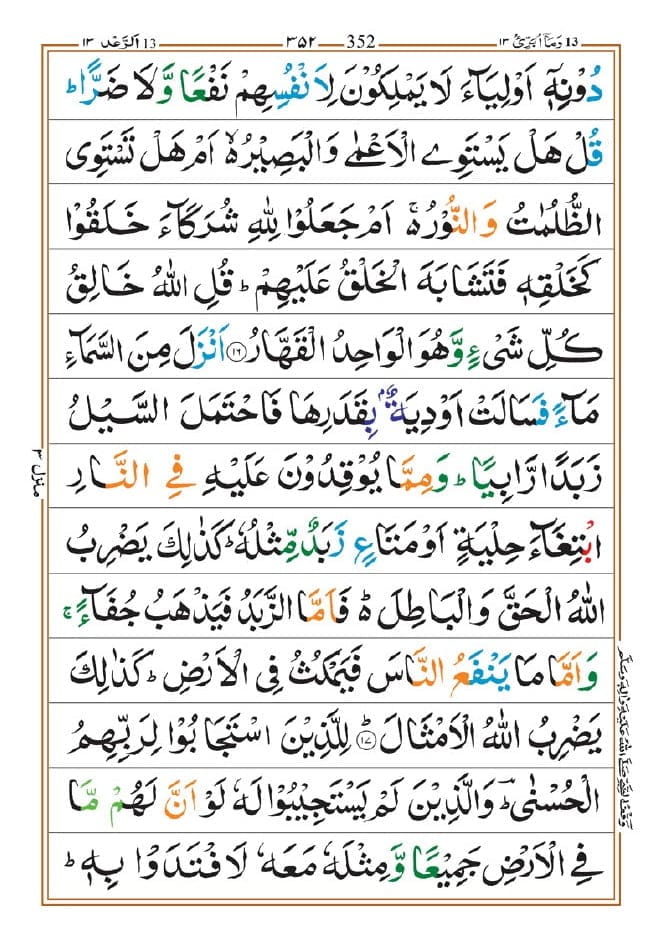 ١٣ اَلرَّعْد 13
٣٥٢ 352
وَمَآ اُبَرِّئُ ١٣ 13
دُوْنِهٖۤ اَوْلِيَآءَ لَا يَمْلِكُوْنَ لِاَنْفُسِهِمْ نَفْعًا وَّلَا ضَرًّا ؕ
قُلْ هَلْ يَسْتَوِي الْاَعْمٰى وَالْبَصِيْرُ ۙ۬ اَمْ هَلْ تَسْتَوِي
الظُّلُمٰتُ وَالنُّوْرُ ۚ۬ اَمْ جَعَلُوْا لِلّٰهِ شُرَكَآءَ خَلَقُوْا
كَخَلْقِهٖ فَتَشَابَهَ الْخَلْقُ عَلَيْهِمْ ؕ قُلِ اللّٰهُ خَالِقُ
كُلِّ شَيْءٍ وَّهُوَ الْوَاحِدُ الْقَهَّارُ ١٦ اَنْزَلَ مِنَ السَّمَآءِ
مَآءً فَسَالَتْ اَوْدِيَةٌۢ بِقَدَرِهَا فَاحْتَمَلَ السَّيْلُ
زَبَدًا رَّابِيًا ؕ وَمِمَّا يُوْقِدُوْنَ عَلَيْهِ فِي النَّارِ
ابْتِغَآءَ حِلْيَةٍ اَوْ مَتَاعٍ زَبَدٌ مِّثْلُهٗ ؕ كَذٰلِكَ يَضْرِبُ
اللّٰهُ الْحَقَّ وَالْبَاطِلَ ؕ۬ فَاَمَّا الزَّبَدُ فَيَذْهَبُ جُفَآءً ۚ
وَاَمَّا مَا يَنْفَعُ النَّاسَ فَيَمْكُثُ فِي الْاَرْضِ ؕ كَذٰلِكَ
يَضْرِبُ اللّٰهُ الْاَمْثَالَ ؕ ١٧ لِلَّذِيْنَ اسْتَجَابُوْا لِرَبِّهِمُ
الْحُسْنٰى ؔؕ وَالَّذِيْنَ لَمْ يَسْتَجِيْبُوْا لَهٗ لَوْ اَنَّ لَهُمْ مَّا
فِي الْاَرْضِ جَمِيْعًا وَّمِثْلَهٗ مَعَهٗ لَافْتَدَوْا بِهٖ ؕ
منزل ٣
وقف النبي صلى الله عليه واله وسلم